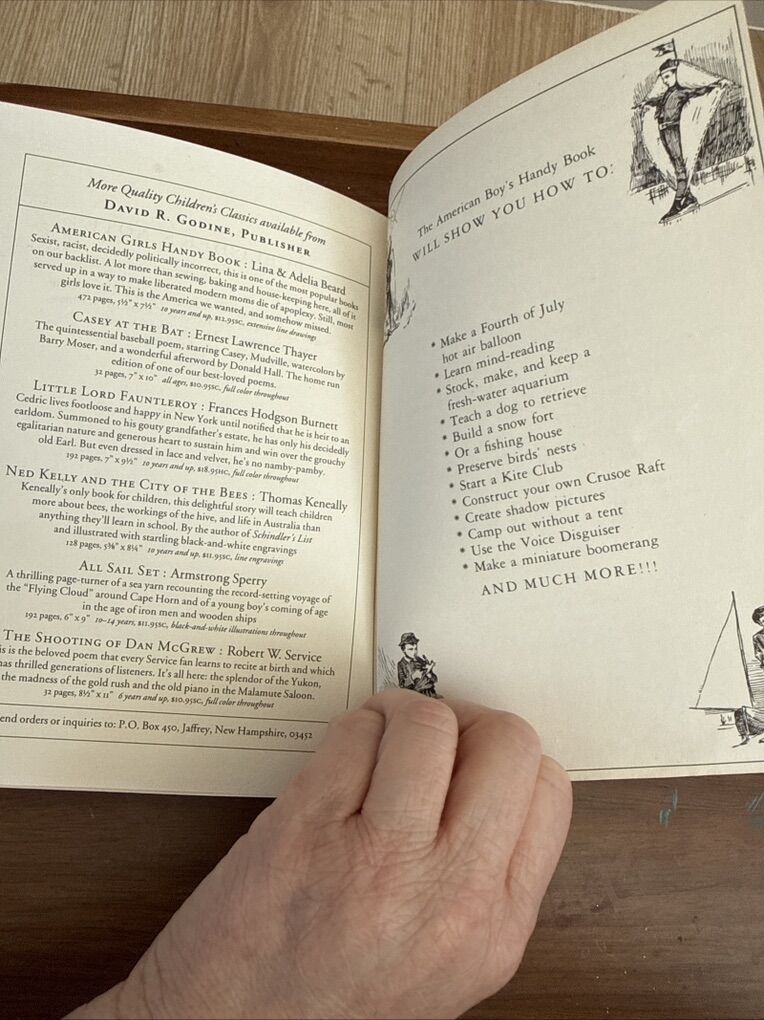 More Quality Children's Classics available from
David R. Godine, Publisher
American Girls Handy Book : Lina & Adelia Beard
Sexist, racist, decidedly politically incorrect, this is one of the most popular books
on our backlist. A lot more than sewing, baking and house-keeping here, all of it
served up in a way to make liberated modern moms die of apoplexy. Still, most
girls love it. This is the America we wanted, and somehow missed.
472 pages, 5½" x 7½" 10 years and up, $12.95sc, extensive line drawings
Casey at the Bat : Ernest Lawrence Thayer
The quintessential baseball poem, starring Casey, Mudville, watercolors by
Barry Moser, and a wonderful afterword by Donald Hall. The home run
edition of one of our best-loved poems.
32 pages, 7" x 10" all ages, $10.95sc, full color throughout
Little Lord Fauntleroy : Frances Hodgson Burnett
Cedric lives footloose and happy in New York until notified that he is heir to an
earldom. Summoned to his gouty grandfather's estate, he has only his decidedly
egalitarian nature and generous heart to sustain him and win over the grouchy
old Earl. But even dressed in lace and velvet, he's no namby-pamby.
192 pages, 7" x 9½" 10 years and up, $18.95sc, full color throughout
Ned Kelly and the City of the Bees : Thomas Keneally
Keneally's only book for children, this delightful story will teach children
more about bees, the workings of the hive, and life in Australia than
anything they'll learn in school. By the author of Schindler's List
and illustrated with startling black-and-white engravings
128 pages, 5⅜" x 8¼" 10 years and up, $11.95sc, line engravings
All Sail Set : Armstrong Sperry
A thrilling page-turner of a sea yarn recounting the record-setting voyage of
the "Flying Cloud" around Cape Horn and of a young boy's coming of age
in the age of iron men and wooden ships
192 pages, 6" x 9" 10–14 years, $11.95sc, black-and-white illustrations throughout
The Shooting of Dan McGrew : Robert W. Service
is is the beloved poem that every Service fan learns to recite at birth and which
has thrilled generations of listeners. It's all here: the splendor of the Yukon,
the madness of the gold rush and the old piano in the Malamute Saloon.
32 pages, 8½" x 11" 6 years and up, $10.95sc, full color throughout
end orders or inquiries to: P.O. Box 450, Jaffrey, New Hampshire, 03452
The American Boy's Handy Book
WILL SHOW YOU HOW TO:
* Make a Fourth of July
hot air balloon
* Learn mind-reading
* Stock, make, and keep a
fresh-water aquarium
* Teach a dog to retrieve
* Build a snow fort
* Or a fishing house
* Preserve birds' nests
* Start a Kite Club
* Construct your own Crusoe Raft
* Create shadow pictures
* Camp out without a tent
* Use the Voice Disguiser
* Make a miniature boomerang
AND MUCH MORE!!!